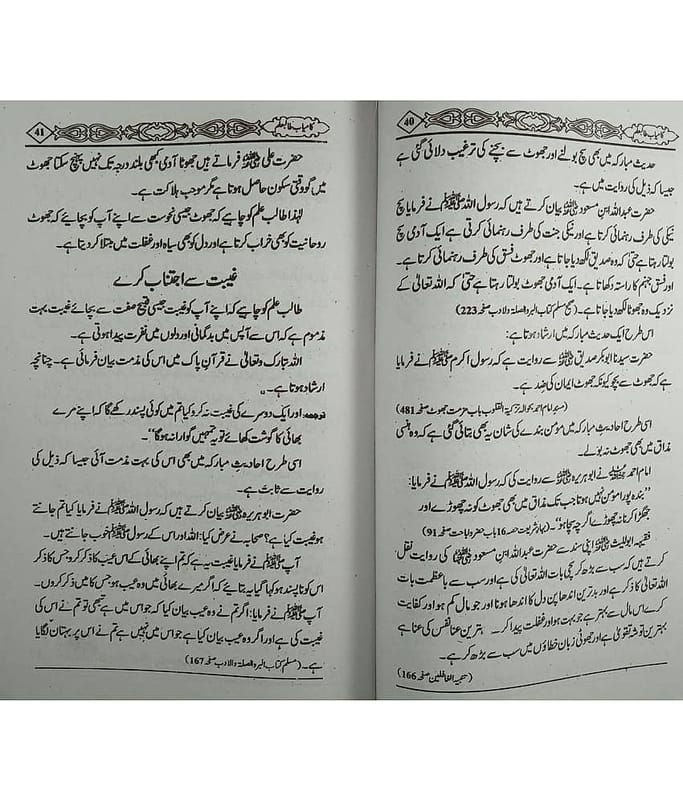 40
کامیاب طالبعلم
حدیث مبارکہ میں بھی سچ بولنے اور جھوٹ سے بچنے کی ترغیب دلائی گئی ہے
جیسا کہ ذیل کی روایت میں ہے۔
حضرت عبداللہ ابن مسعود رضی اللہ عنہ بیان کرتے ہیں کہ رسول اللہ ﷺ نے فرمایا سچ
نیکی کی طرف رہنمائی کرتا ہے اور نیکی جنت کی طرف رہنمائی کرتی ہے ایک آدمی سچ
بولتا رہتا ہے حتیٰ کہ وہ صدیق لکھ دیا جاتا ہے اور جھوٹ فسق کی طرف رہنمائی کرتا ہے۔
اور فسق جہنم کا راستہ دکھاتا ہے۔ ایک آدمی جھوٹ بولتا رہتا ہے حتیٰ کہ اللہ تعالیٰ کے
نزدیک وہ جھوٹا لکھ دیا جاتا ہے۔ (صحیح مسلم کتاب البر والصلۃ والادب صفحہ 223)
اس طرح ایک حدیث مبارکہ میں ارشاد ہوتا ہے:
حضرت سیدنا ابوبکر صدیق رضی اللہ عنہ سے روایت ہے کہ رسول اکرم ﷺ نے فرمایا
ہے کہ جھوٹ سے بچو کیونکہ جھوٹ ایمان کی ضد ہے۔
(مسند امام احمد بحوالہ تزکیۃ القلوب باب حرمت جھوٹ صفحہ 481)
اسی طرح احادیث مبارکہ میں مؤمن بندے کی شان یہ بھی بتائی گئی ہے کہ وہ ہنسی
مذاق میں بھی جھوٹ نہ بولے۔
امام احمد نے ابوہریرہ رضی اللہ عنہ سے روایت کی کہ رسول اللہ ﷺ نے فرمایا:
"بندہ پورا مؤمن نہیں ہوتا جب تک مذاق میں بھی جھوٹ کو نہ چھوڑے اور
جھگڑا کرنا نہ چھوڑے اگرچہ سچا ہو"۔ (بہار شریعت حصہ 16 باب حضر واباحت صفحہ 91)
فقیہہ ابواللیث اپنی سند سے حضرت عبداللہ ابن مسعود رضی اللہ عنہ کی روایت نقل
کرتے ہیں کہ سب سے بڑھ کر سچی بات اللہ تعالیٰ کی ہے اور سب سے باعظمت بات
اللہ تعالیٰ کا ذکر ہے اور بدترین اندھا پن دل کا اندھا ہونا اور جو مال کم ہو اور کفایت
کرے اس مال سے بہتر ہے جو بہت ہو اور غفلت پیدا کرے۔ بہترین غنا نفس کی غنا ہے
بہترین توشہ تقویٰ ہے اور جھوٹی زبان خطاؤں میں سب سے بڑھ کر ہے۔
(تنبیہ الغافلین صفحہ 166)
41
کامیاب طالبعلم
حضرت علی رضی اللہ عنہ فرماتے ہیں جھوٹا آدمی کبھی بلند درجہ تک نہیں پہنچ سکتا جھوٹ
میں گو وقتی سکون حاصل ہوتا ہے مگر موجب ہلاکت ہے۔
لہٰذا طالب علم کو چاہیے کہ جھوٹ جیسی نحوست سے اپنے آپ کو بچائیے کہ جھوٹ
روحانیت کو بھی خراب کرتا ہے اور دل کو بھی سیاہ اور غفلت میں مبتلا کر دیتا ہے۔
غیبت سے اجتناب کرے
طالب علم کو چاہیے کہ اپنے آپ کو غیبت جیسی قبیح صفت سے بچائے غیبت بہت
مذموم ہے کہ اس سے آپس میں بدگمانی اور دلوں میں نفرت پیدا ہوتی ہے۔
اللہ تبارک و تعالیٰ نے قرآن پاک میں اس کی مذمت بیان فرمائی ہے۔ چنانچہ
ارشاد ہوتا ہے۔
ترجمہ: اور ایک دوسرے کی غیبت نہ کرو کیا تم میں کوئی پسند رکھے گا کہ اپنے مرے
بھائی کا گوشت کھائے تو یہ تمہیں گوارا نہ ہوگا"۔
اسی طرح احادیث مبارکہ میں بھی اس کی بہت مذمت آئی جیسا کہ ذیل کی
روایت سے ثابت ہے۔
حضرت ابوہریرہ رضی اللہ عنہ بیان کرتے ہیں کہ رسول اللہ ﷺ نے فرمایا کیا تم جانتے
ہو غیبت کیا ہے؟ صحابہ نے عرض کیا: اللہ اور اس کے رسول ﷺ خوب جانتے ہیں۔
آپ ﷺ نے فرمایا غیبت یہ ہے کہ تم اپنے بھائی کے اس عیب کا ذکر کرو جس کا ذکر
اس کو نا پسند ہو کہا گیا یہ بتائیے کہ اگر میرے بھائی میں وہ عیب ہو جس کا میں ذکر کروں۔
آپ ﷺ نے فرمایا: اگر تم نے وہ عیب بیان کیا کہ جو اس میں ہے تبھی تو تم نے اس کی
غیبت کی ہے اور اگر وہ عیب بیان کیا ہے جو اس میں نہیں ہے تم نے اس پر بہتان لگایا
ہے۔ (مسلم کتاب البر والصلۃ والادب صفحہ 167)